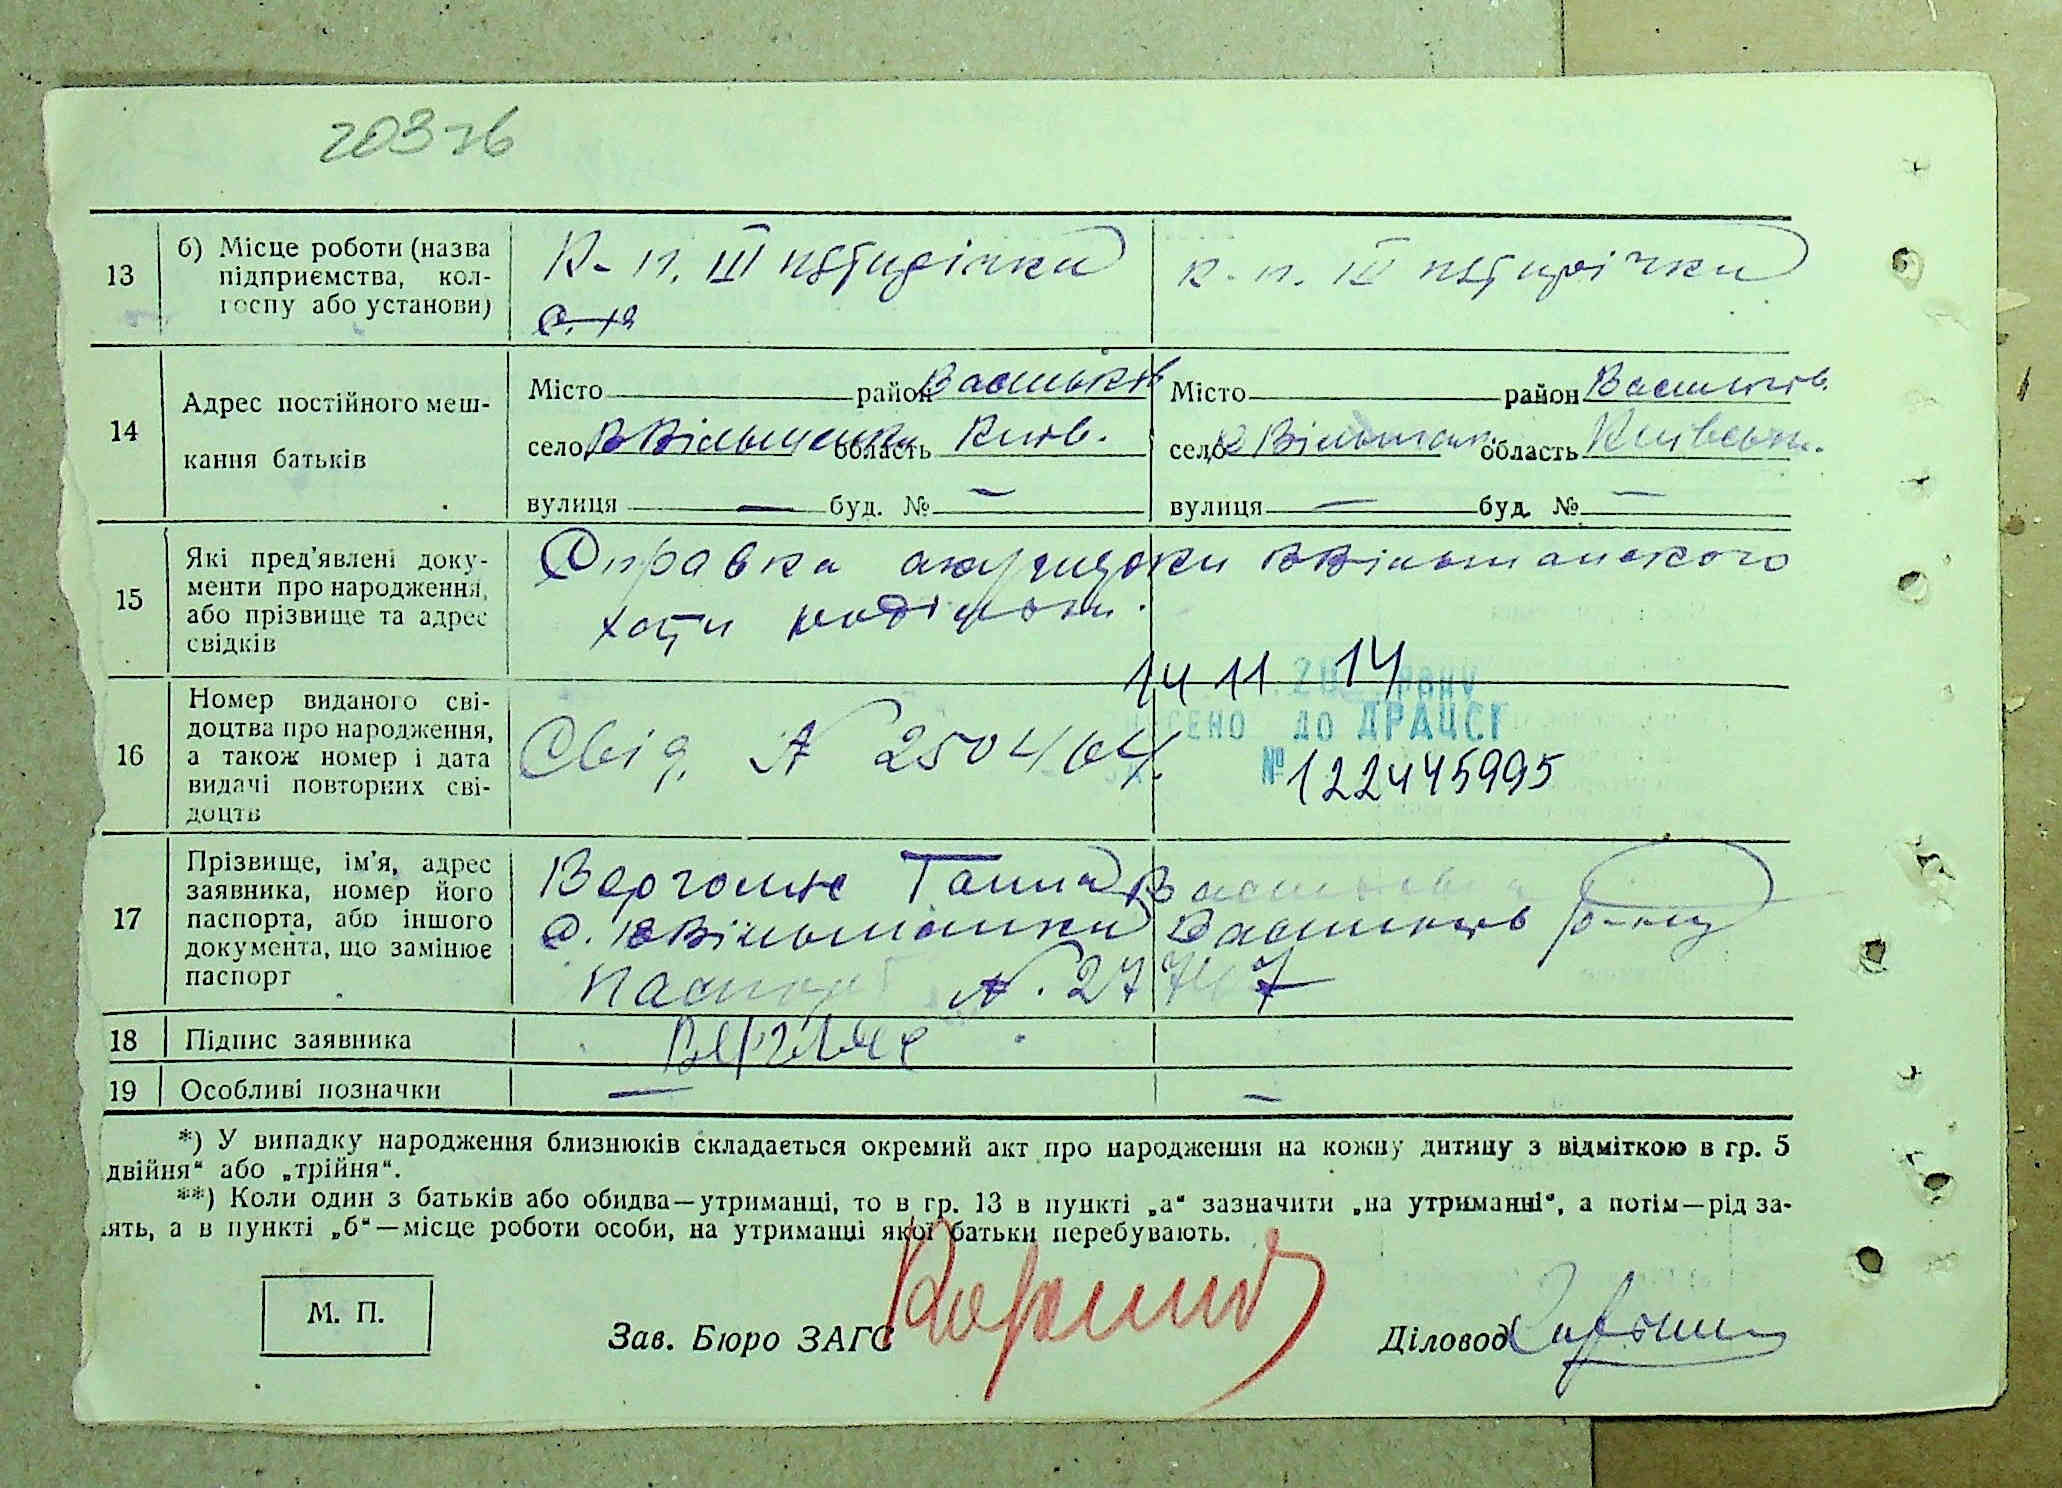 20376
13
б) Місце роботи (назва
підприємства, кол-
госпу або установи)
К-п. III п'ятирічки
к-п. III п'ятирічки
14
Адрес постійного меш-
кання батьків
Місто район Васильків
село В Вільшанка область Київ.
вулиця — буд. № —
Місто район Васильків.
село В Вільшан. область Київськ.
вулиця — буд. № —
15
Які пред'явлені доку-
менти про народження,
або прізвище та адрес
свідків
Справка акушерки ВВільшанского
хати родільні.
16
Номер виданого сві-
доцтва про народження,
а також номер і дата
видачі повторних сві-
доцтв
Свід. № 250464.
14 11 . 20 14 РОКУ
ЕНО ДО ДРАЦСГ
№ 122445995
17
Прізвище, ім'я, адрес
заявника, номер його
паспорта, або іншого
документа, що замінює
паспорт
Ганна Васильевна
с. ВВільшанка Васильків району
Паспорт №.
18
Підпис заявника
19
Особливі позначки
— —
*) У випадку народження близнюків складається окремий акт про народження на кожну дитину з відміткою в гр. 5
двійня“ або „трійня“.
**) Коли один з батьків або обидва—утриманці, то в гр. 13 в пункті „а“ зазначити „на утриманні“, а потім—рід за-
ять, а в пункті „б“—місце роботи особи, на утриманні якої батьки перебувають.
М. П.
Зав. Бюро ЗАГС
Діловод